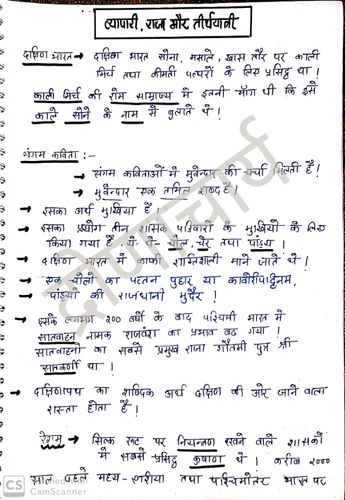 व्यापारी, राजा और तीर्थयात्री
दक्षिण भारत → दक्षिण भारत सोना, मसाले, खास तौर पर काली
मिर्च तथा कीमती पत्थरों के लिए प्रसिद्ध था !
काली मिर्च की रोम साम्राज्य में इतनी माँग थी कि इसे
काले सोने के नाम से बुलाते थे !
संगम कविता :-
→ संगम कविताओं में मुवेन्दार की चर्चा मिलती है !
→ मुवेन्दार एक तमिल शब्द है !
→ इसका अर्थ मुखिया है !
→ इसका प्रयोग तीन शासक परिवारों के मुखियों के लिए
किया गया है ये थे- चोल, चेर तथा पांड्य !
→ दक्षिण भारत में काफी शक्तिशाली माने जाते थे !
→ एक चोलों का पत्तन पुहार या कावेरीपट्टिनम,
→ पांड्यों की राजधानी मदुरै !
→ इसके लगभग 200 वर्षों के बाद पश्चिमी भारत में
सातवाहन नामक राजवंश का प्रभाव बढ़ गया !
सातवाहनों का सबसे प्रमुख राजा गौतमी पुत्र श्री
सातकर्णी था !
→ दक्षिणापथ का शाब्दिक अर्थ दक्षिण की ओर जाने वाला
रास्ता होता है !
रेशम → सिल्क रूट पर नियन्त्रण रखने वाले शासकों
में सबसे प्रसिद्ध कुषाण थे ! करीब 2000
साल पहले मध्य-एशिया तथा पश्चिमोत्तर भारत पर
द्रोणाचार्य
CS CamScanner